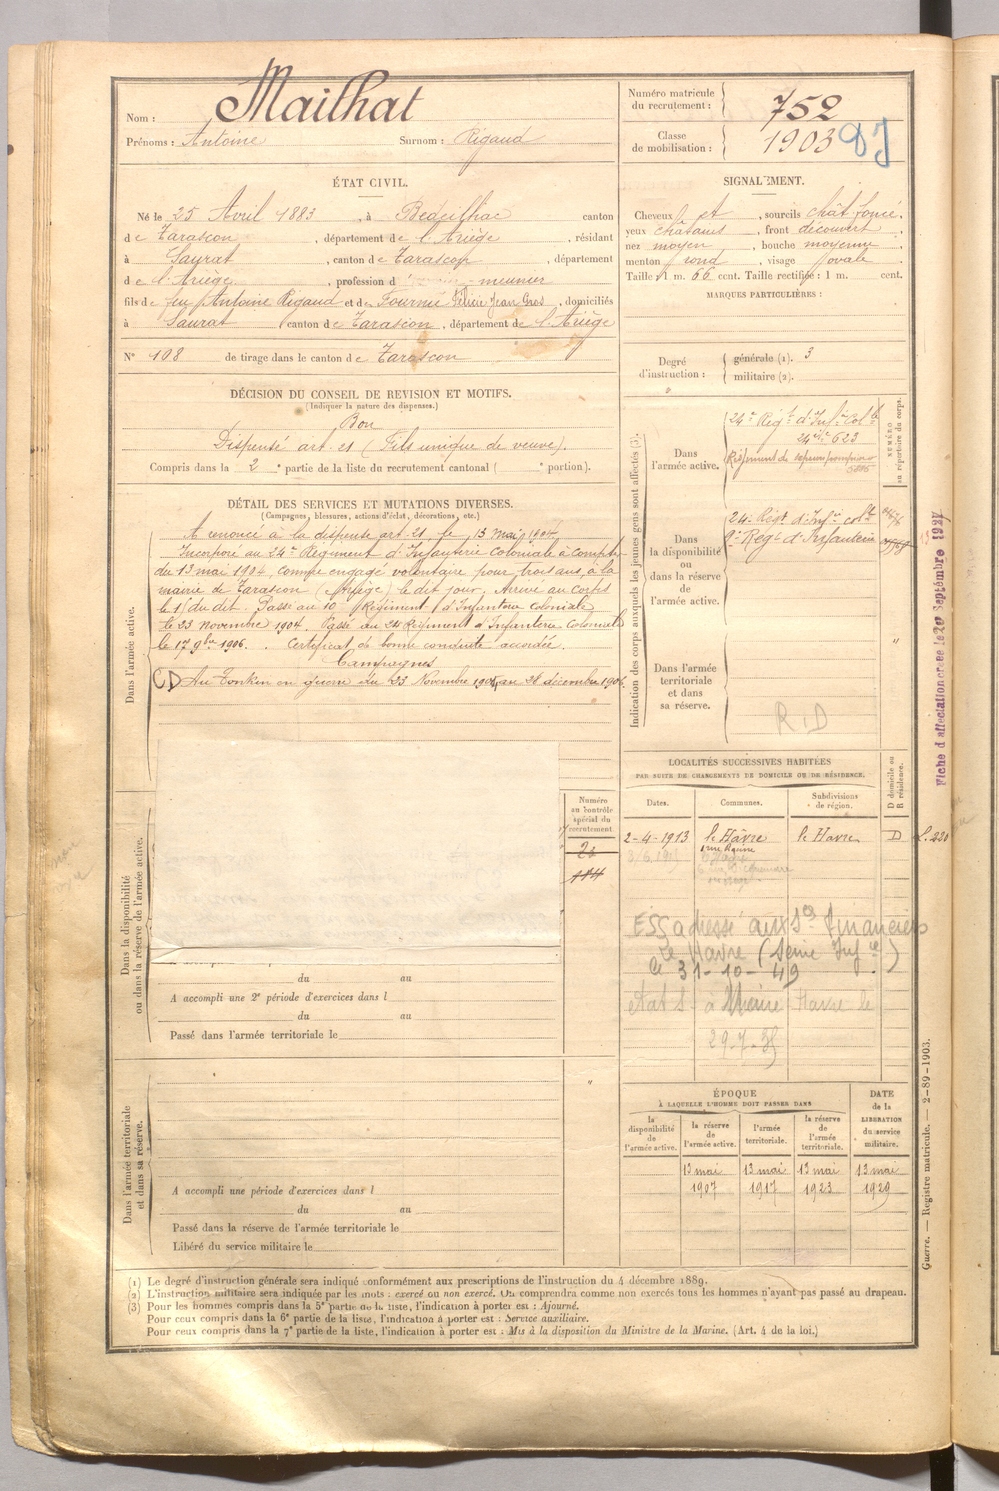 Nom : Mailhat
Prénoms : Antoine Surnom : Rigaud
ÉTAT CIVIL.
Né le 25 Avril 1883, à Bedeilhac canton
de Tarascon, département de l'Ariège, résidant
à Saurat, canton de Tarascon, département
de l'Ariège, profession d meunier
fils de feu Antoine Rigaud et de Fournié Félicie Jean Gros, domiciliés
à Saurat canton de Tarascon, département de l'Ariège
N° 108 de tirage dans le canton de Tarascon
DÉCISION DU CONSEIL DE REVISION ET MOTIFS.
(Indiquer la nature des dispenses.)
Bon
Dispensé art. 21 (Fils unique de veuve).
Compris dans la 2e partie de la liste du recrutement cantonal ( e portion).
DÉTAIL DES SERVICES ET MUTATIONS DIVERSES.
(Campagnes, blessures, actions d'éclat, décorations, etc.)
Dans l'armée active.
A renoncé à la dispense art. 21, le 13 mai 1904.
Incorporé au 24e Régiment d'Infanterie coloniale à compter
du 13 mai 1904, comme engagé volontaire pour trois ans, à la
mairie de Tarascon (Ariège) le dit jour. Arrivé au corps
le 15 du dit. Passé au 10e Régiment d'Infanterie Coloniale
le 23 novembre 1904. Passé au 24 Régiment d'Infanterie Coloniale
le 17 9bre 1906. Certificat de bonne conduite accordé.
Campagnes
CD Au Tonkin en guerre du 23 Novembre 1904, au 28 décembre 1906.
Dans la disponibilité
ou dans la réserve de l'armée active.
Numéro
au contrôle
spécial du
recrutement
du au
A accompli une 2e période d'exercices dans l
du au
Passé dans l'armée territoriale le
Dans l'armée territoriale
et dans sa réserve.
A accompli une période d'exercices dans l
du au
Passé dans la réserve de l'armée territoriale le
Libéré du service militaire le
Numéro matricule
du recrutement : 752
Classe
de mobilisation : 1903
SIGNALEMENT.
Cheveux et, sourcils chât foncé.
yeux châtains, front découvert,
nez moyen, bouche moyenne
menton rond, visage ovale
Taille : 1 m. 66 cent. Taille rectifiée : 1 m. cent.
MARQUES PARTICULIÈRES :
Degré
d'instruction :
générale (1). 3
militaire (2).
Indication des corps auxquels les jeunes gens sont affectés (3).
NUMÉRO
au répertoire du corps.
Dans
l'armée active.
24e Régt d'Infie Colle
623
Régiment de
Dans
la disponibilité
ou
dans la réserve
de
l'armée active.
24e Régt d'Infie colle
Régt d'Infanterie
Dans l'armée
territoriale
et dans
sa réserve.
R.D
Fiche d'affectation créée le 20 Septembre 1927
LOCALITÉS SUCCESSIVES HABITÉES
PAR SUITE DE CHANGEMENTS DE DOMICILE OU DE RÉSIDENCE.
Dates. Communes. Subdivisions de région. D domicile ou R résidence.
2-4-1913 le Hâvre le Havre D
ESS adressé aux Ses Financiers
Le Havre (Seine Infre)
le 31-10-49
Etat S. à Mairie Havre le
29-7-35
ÉPOQUE
À LAQUELLE L'HOMME DOIT PASSER DANS
la disponibilité de l'armée active.
la réserve de l'armée active.
l'armée territoriale.
la réserve de l'armée territoriale.
DATE de la LIBÉRATION du service militaire.
13 mai 13 mai 13 mai 13 mai
1907 1917 1923 1929
Guerre. — Registre matricule. — 2-89-1903.
(1) Le degré d'instruction générale sera indiqué conformément aux prescriptions de l'instruction du 4 décembre 1889.
(2) L'instruction militaire sera indiquée par les mots : exercé ou non exercé. On comprendra comme non exercés tous les hommes n'ayant pas passé au drapeau.
(3) Pour les hommes compris dans la 5e partie de la liste, l'indication à porter est : Ajourné.
Pour ceux compris dans la 6e partie de la liste, l'indication à porter est : Service auxiliaire.
Pour ceux compris dans la 7e partie de la liste, l'indication à porter est : Mis à la disposition du Ministre de la Marine. (Art. 4 de la loi.)